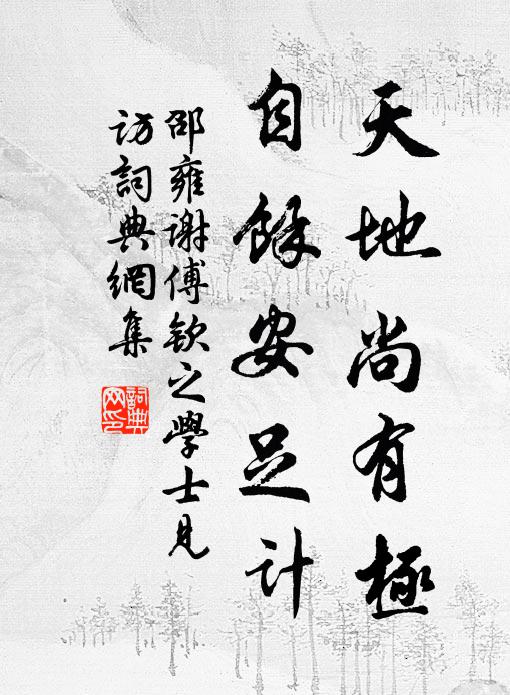 天地尚有極
自餘安足計
邵雍謝傅欽之學士見
訪詞典網集
詞典
网印